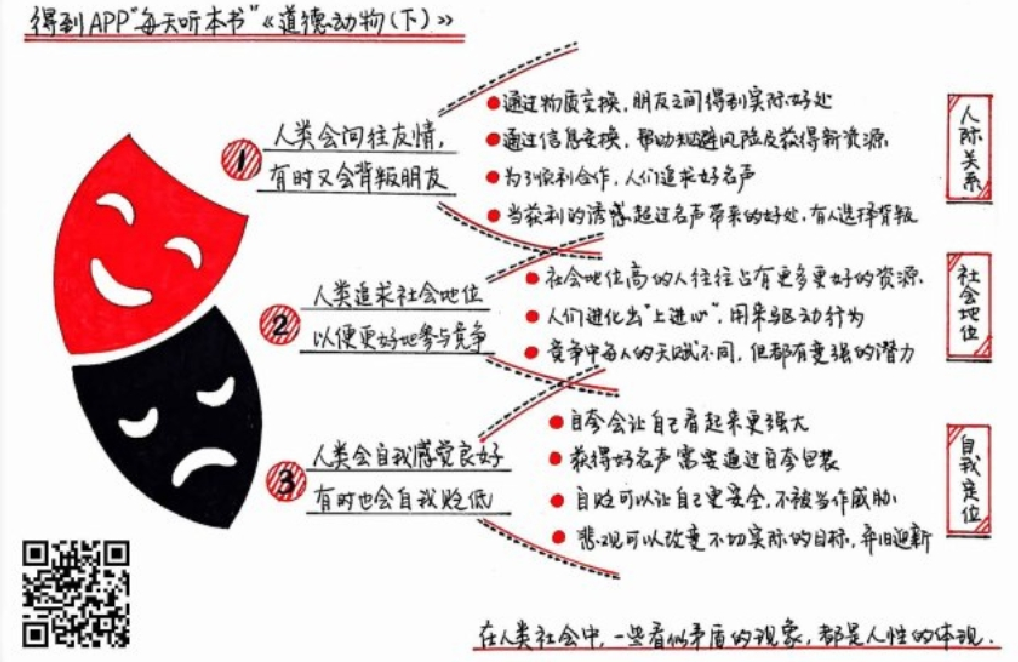 得到APP“每天听本书”《道德动物(下)》
1
人类会向往友情，
有时又会背叛朋友
通过物质交换，朋友之间得到实际好处
通过信息交换，帮助规避风险及获得新资源
为了顺利合作，人们追求好名声
当获利的诱惑超过名声带来的好处，有人选择背叛
人际关系
2
人类追求社会地位
以便更好地参与竞争
社会地位高的人往往占有更多更好的资源.
人们进化出“上进心”，用来驱动行为
竞争中每人的天赋不同，但都有变强的潜力
社会地位
3
人类会自我感觉良好
有时也会自我贬低
自夸会让自己看起来更强大
获得好名声需要通过自夸包装
自贬可以让自己更安全，不被当作威胁
悲观可以改变不切实际的目标，弃旧迎新
自我定位
在人类社会中，一些看似矛盾的现象，都是人性的体现.